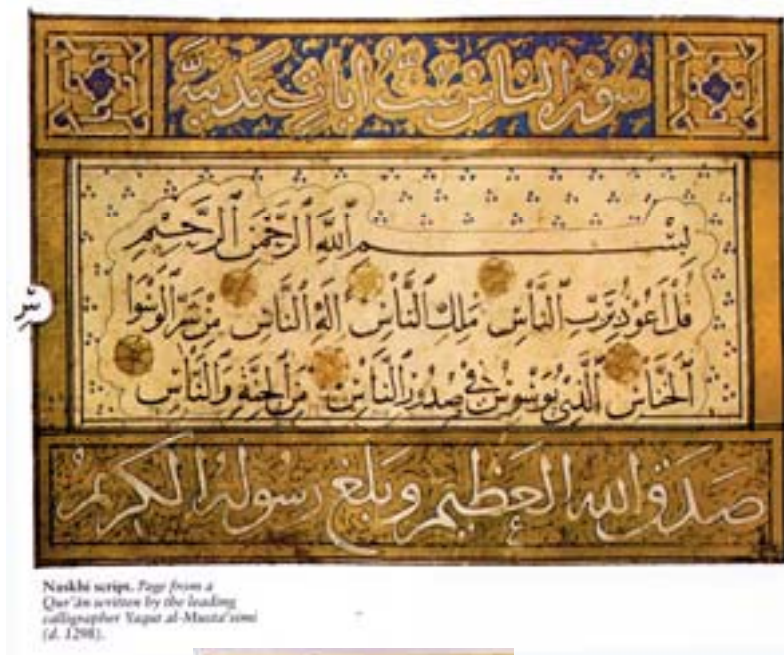 سورة الناس ست ايات مدنية
بِسْمِ ٱللَّهِ ٱلرَّحْمَنِ ٱلرَّحِيمِ
قُلْ أَعُوذُ بِرَبِّ ٱلنَّاسِ مَلِكِ ٱلنَّاسِ إِلَهِ ٱلنَّاسِ مِن شَرِّ ٱلْوَسْوَا
ٱلْخَنَّاسِ ٱلَّذِي يُوَسْوِسُ فِي صُدُورِ ٱلنَّاسِ مِنَ ٱلْجِنَّةِ وَٱلنَّاسِ
صَدَقَ الله العَظِيم وَبَلَّغ رَسُولُهُ الكَرِيمُ
Naskhi script. Page from a
Qur'án written by the leading
calligrapher Yaqut al-Musta'simi
(d. 1298).